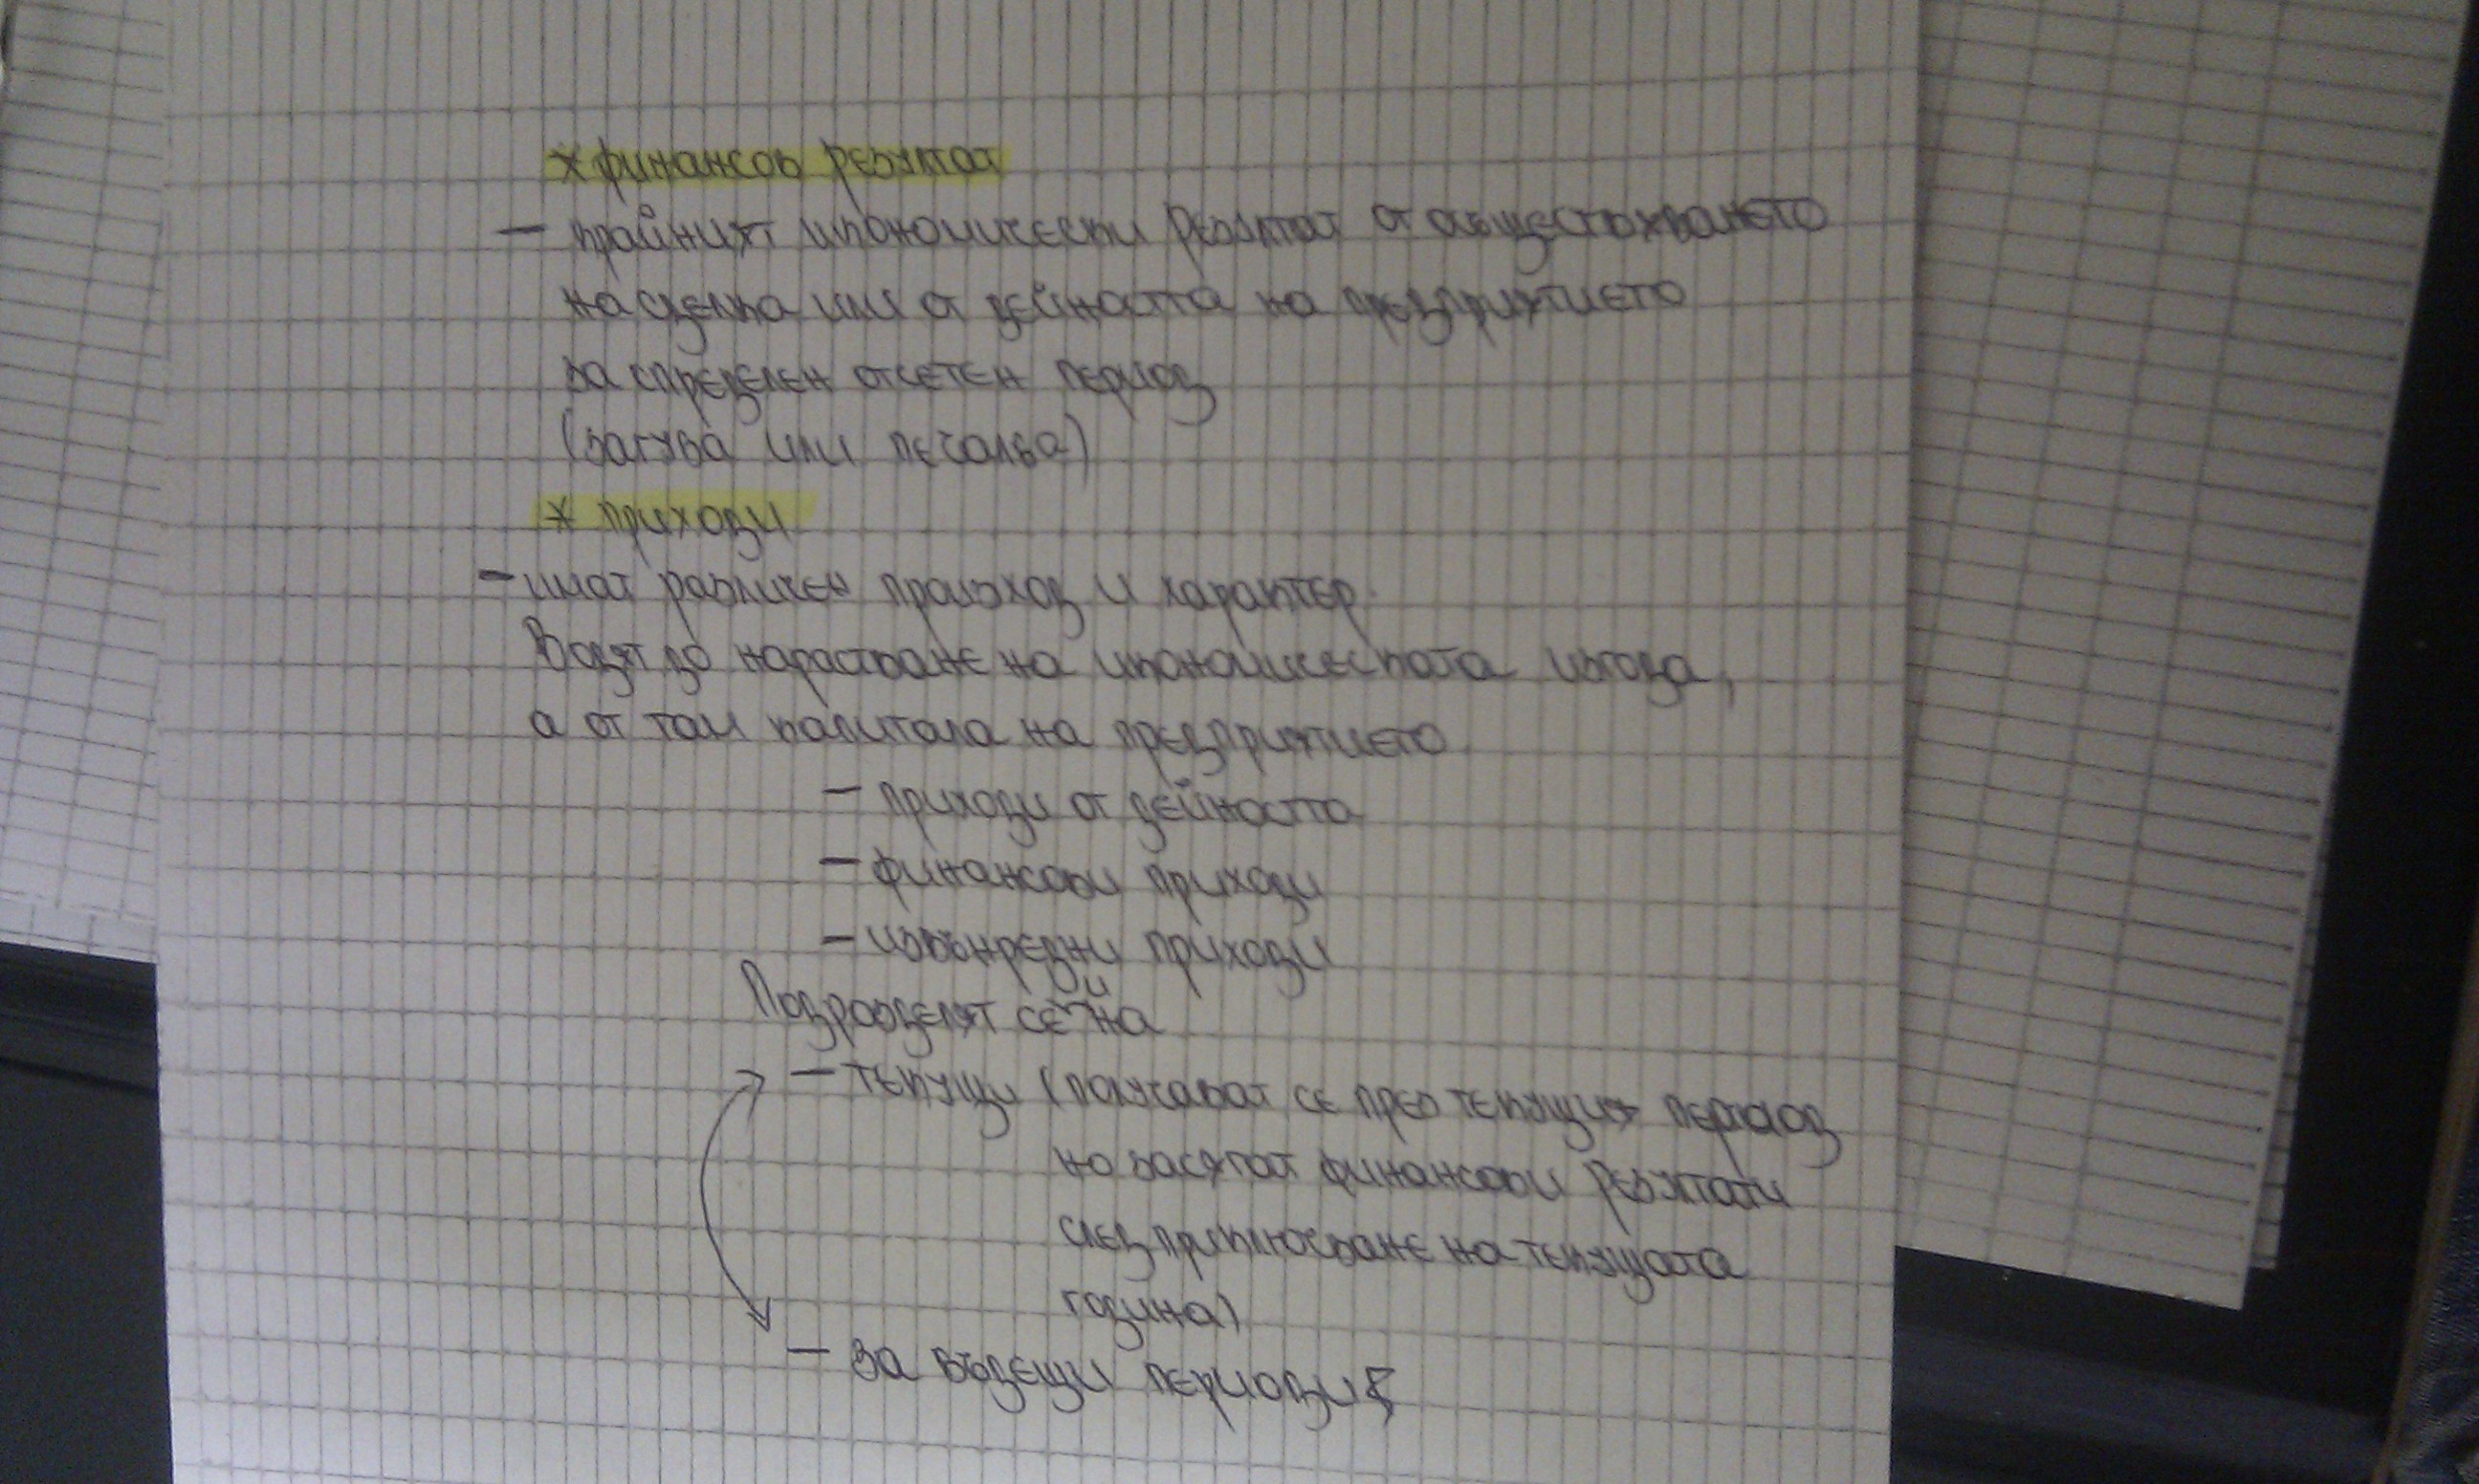 * финансов резултат
- крайният икономически резултат от осъществяването
на сделка или от дейността на предприятието
за определен отчетен период
(загуба или печалба)
* приходи
- имат различен произход и характер.
Водят до нарастване на икономическата изгода,
а от там капитала на предприятието
- приходи от дейността
- финансови приходи
- извънредни приходи
Подразделят се и на
- текущи (получават се през текущия период
но засягат финансови резултати
след приключване на текущата
година)
- за бъдещи периоди